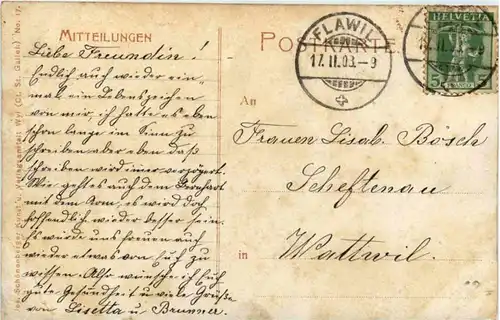 MITTEILUNGEN
Liebe Freundin!
Endlich auch wieder ein-
mal ein Lebenszeichen
von mir, ich hatte es eben
schon lange im Sinn zu
schreiben aber eben das
schreiben wird immer verzögert.
Wie geht es auch dem
mit dem Arm, es wird doch
hoffendlich wieder besser sein.
Es würde uns freuen auch
wieder etwas von Euch zu
wissen. Also wünsche ich Euch
gute Gesundheit u viele Grüße
von Lisetta u Brunner.
POSTKARTE
FLAWIL
17.II.08.-9
HELVETIA
5 5
An
Frauen Lisab. Bösch
Scheftenau
in Wattwil.